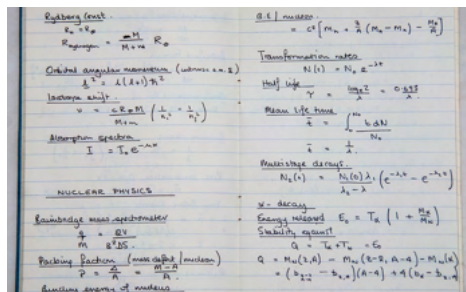 Rydberg Const.
R∞ = R∞
R hydrogen = M / M + m R∞
Orbital angular momentum
L² = l(l+1) ħ²
Isotope shift
ν = c R∞ M / M + m (1/n₁² - 1/n₂²)
Absorption spectra
I = I₀ e^-μx
NUCLEAR PHYSICS
Bainbridge mass spectrometer
q/m =
Packing fraction (mass defect / nucleon)
P = Δ/A = M - A / A
Binding energy of nucleus
B.E / nucleon
= c² [ Mn + Z/A (MH - Mn) - M/A ]
Transformation rates
N(t) = N₀ e^-λt
Half life
τ = loge 2 / λ = 0.693 / λ
Mean life time
t̄ = ∫ t dN / N₀
t̄ = 1/λ
Multistage decays.
N₂(t) = N₁(0) λ₁ / λ₂ - λ₁ (e^-λ₁t - e^-λ₂t)
α - decay
Energy released E₀ = Tα (1 + Mα/MR)
Stability against
Q = Tα + TR = E₀
Q = M(Z,A) - M(Z-2, A-4) - M(α)